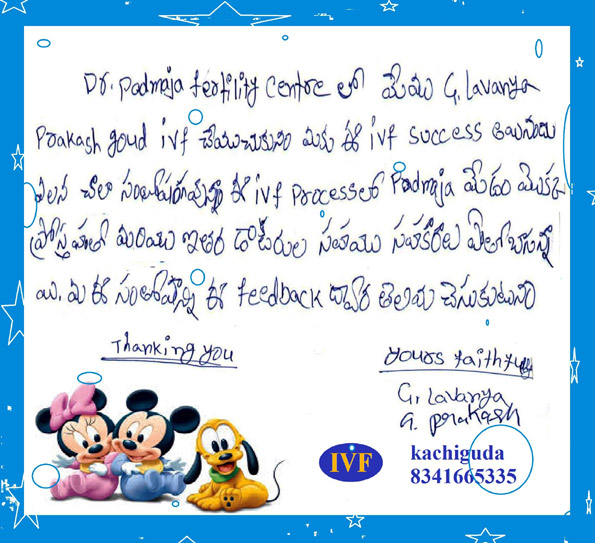 Dr. Padmaja fertility Centre లో మేము G. Lavanya
Prakash goud ivf చేయించుకున్నం మాకు ఈ ivf success అయినందు
వలన చాలా సంతోషంగావున్నాం ఈ ivf Processలో Padmaja మేడం యొక్క
ప్రోత్సాహంతో మరియు ఇతర డాక్టరుల సహయ సహకారాలు
ఈ సంతోషాన్ని ఈ feedback ద్వారా తెలియ చేసుకుంటున్నాం
Thanking you
yours faithfully
G. Lavanya
G. Prakash
IVF
kachiguda
8341665335